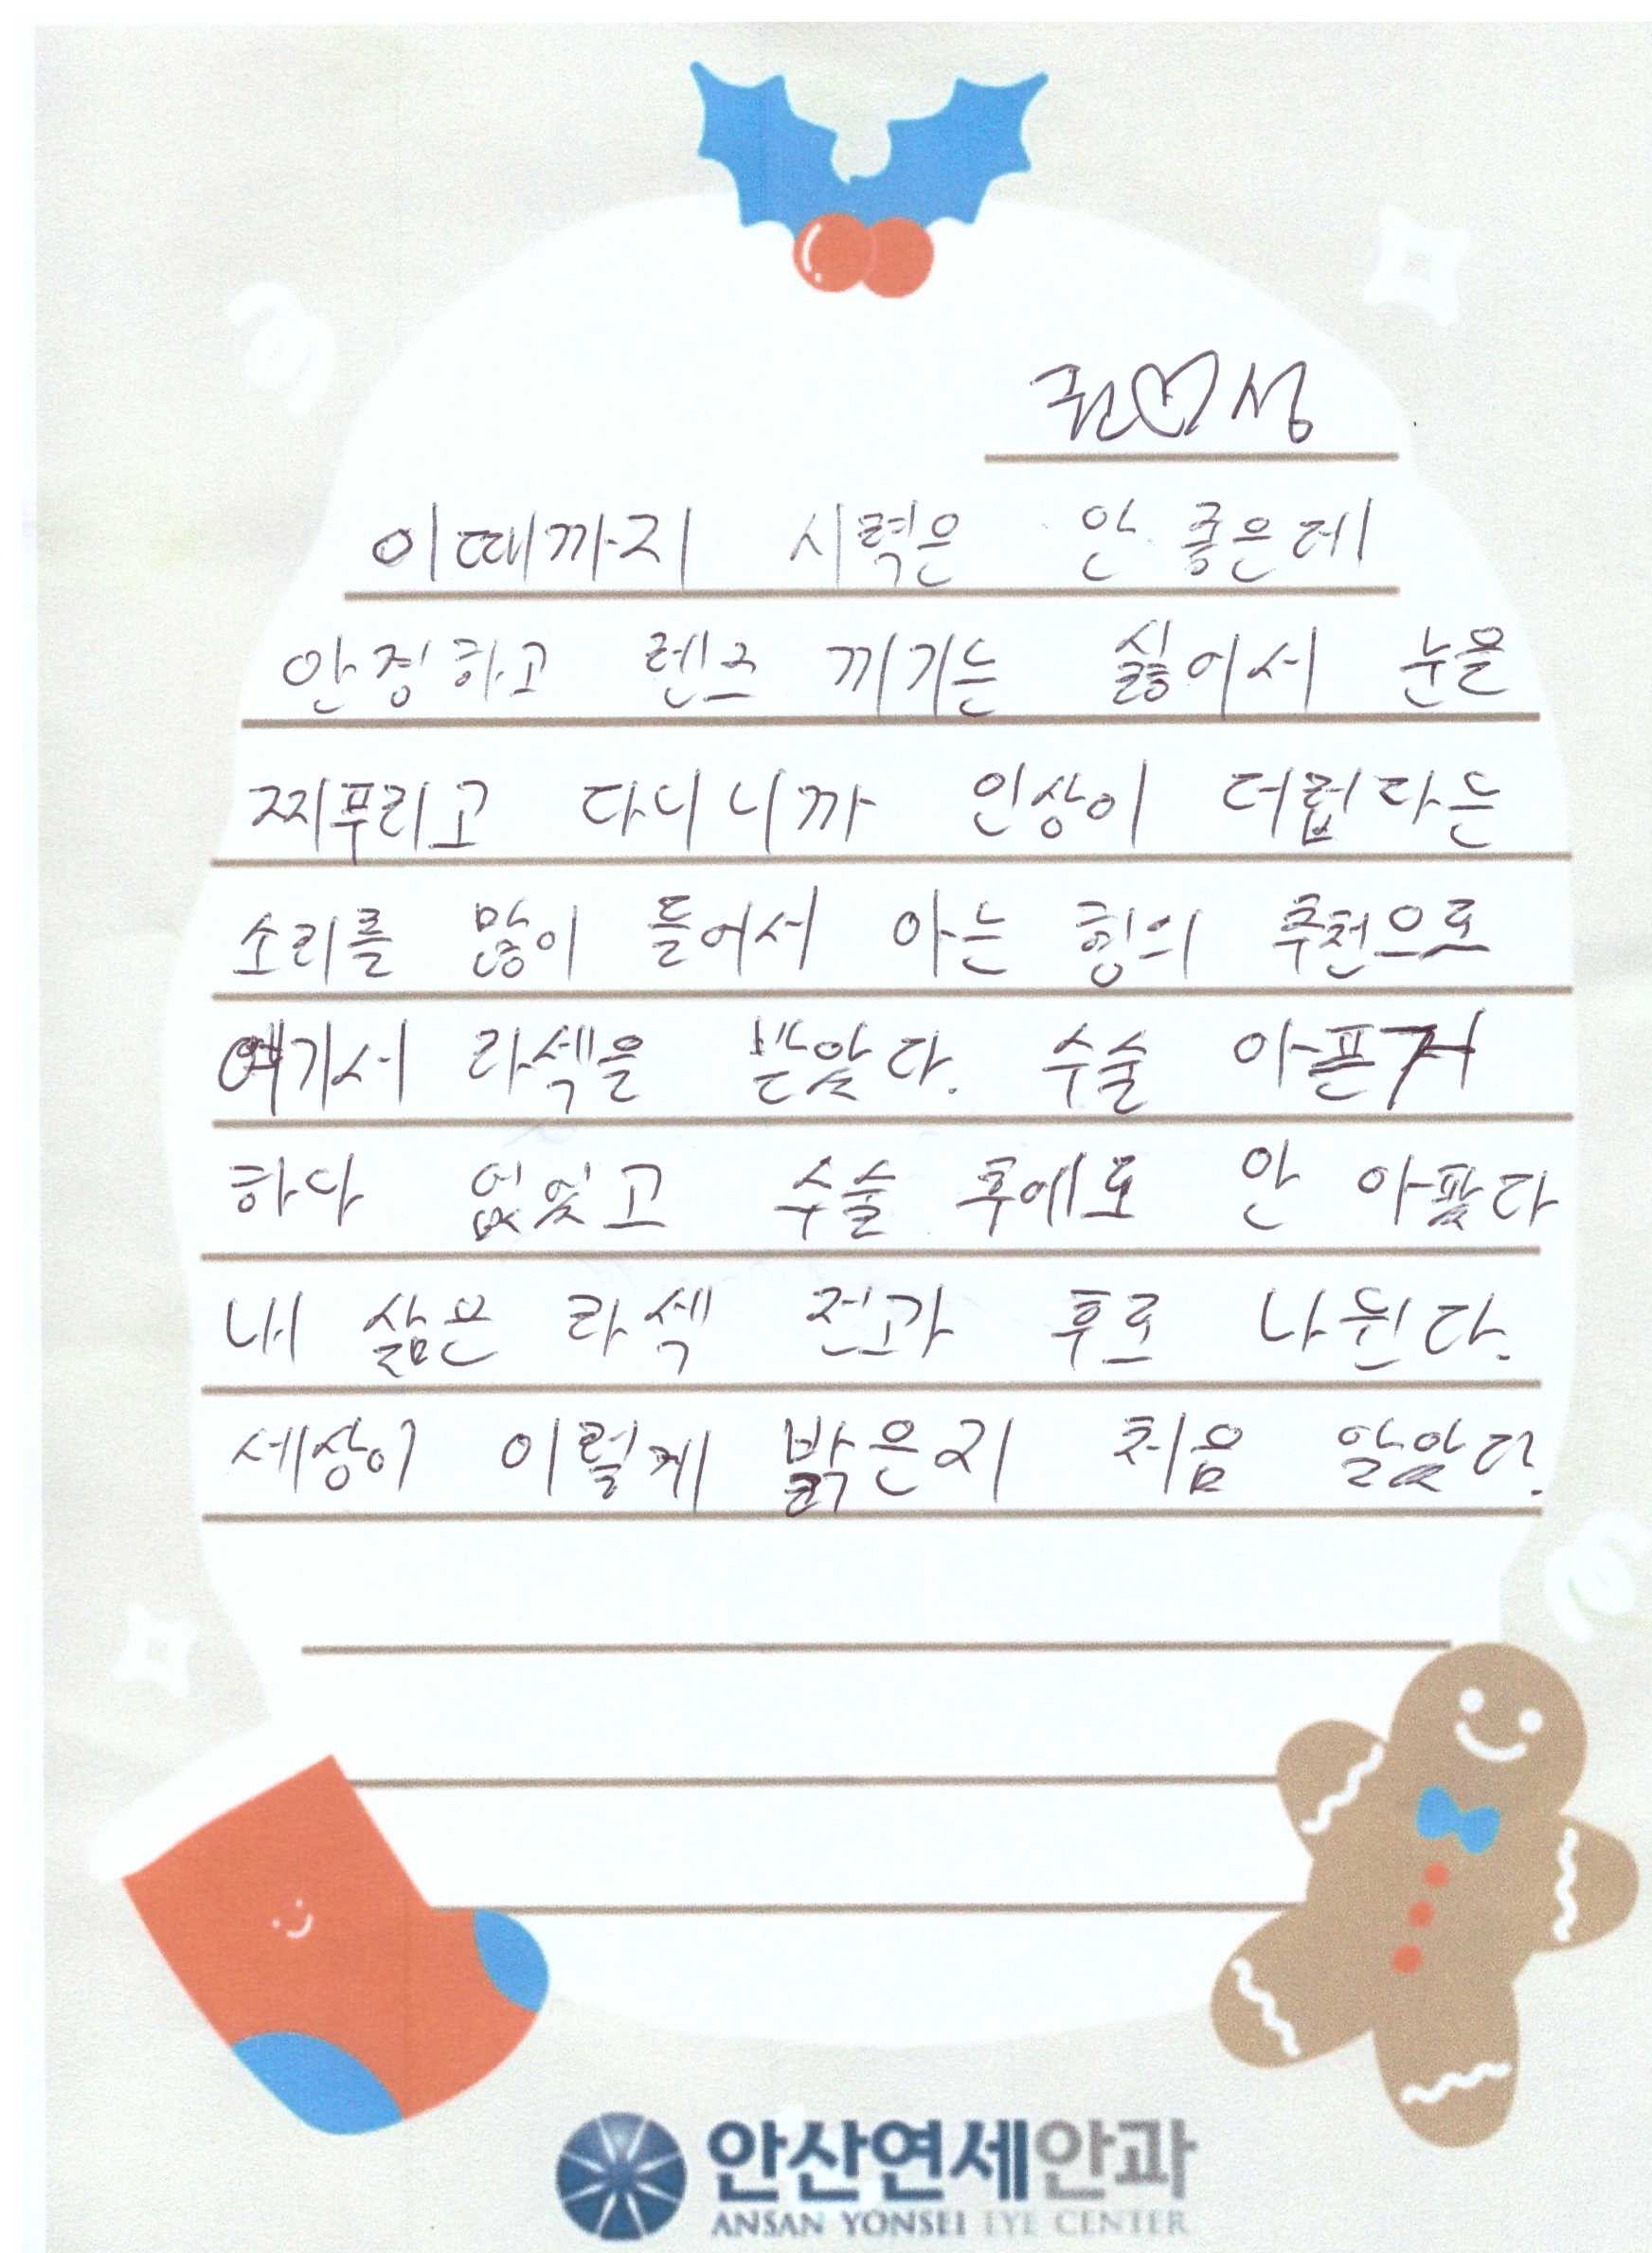 권♡성
이때까지 시력은 안 좋은데
안경하고 렌즈 끼기는 싫어서 눈을
찌푸리고 다니니까 인상이 더럽다는
소리를 많이 들어서 아는 형의 추천으로
여기서 라섹을 받았다. 수술 아픈거
하나 없었고 수술 후에도 안 아팠다
내 삶은 라섹 전과 후로 나뉜다.
세상이 이렇게 밝은지 처음 알았다.
안산연세안과
ANSAN YONSEI EYE CENTER